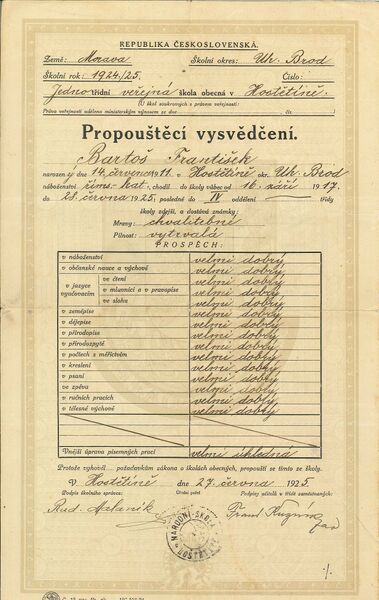 REPUBLIKA ČESKOSLOVENSKÁ.
Země: Morava Školní okres: Uh. Brod
Školní rok: 1924/25. Číslo:
Jednotřídní veřejná škola obecná v Hostětíně.
(U škol soukromých s právem veřejnosti:
Právo veřejnosti uděleno ministerským výnosem ze dne čís.
Propouštěcí vysvědčení.
Bartoš František
narozený dne 14. července 1911. v Hostětíně okr. Uh. Brod
náboženství řím.-kat., chodil do školy vůbec od 16. září 1917.
do 28. června 1925, posledně do IV oddělení třídy
školy zdejší, a dostává známky:
Mravy: chvalitebné
Pilnost: vytrvalá
PROSPĚCH:
v náboženství velmi dobrý
v občanské nauce a výchově velmi dobrý
v jazyce vyučovacím ve čtení velmi dobrý
v mluvnici a v pravopise velmi dobrý
ve slohu velmi dobrý
v zeměpise velmi dobrý
v dějepise velmi dobrý
v přírodopise velmi dobrý
v přírodozpytě velmi dobrý
v počtech s měřictvím velmi dobrý
v kreslení velmi dobrý
v psaní velmi dobrý
ve zpěvu velmi dobrý
v ručních pracích velmi dobrý
v tělesné výchově velmi dobrý
Vnější úprava písemných prací velmi úhledná
Protože vyhověl požadavkům zákona o školách obecných, propouští se tímto ze školy.
V Hostětíně dne 27. června 1925
Podpis školního správce: Úřední pečeť Podpis učitelů v třídě zaměstnaných:
Rud. Frant.
NÁRODNÍ ŠKOLA